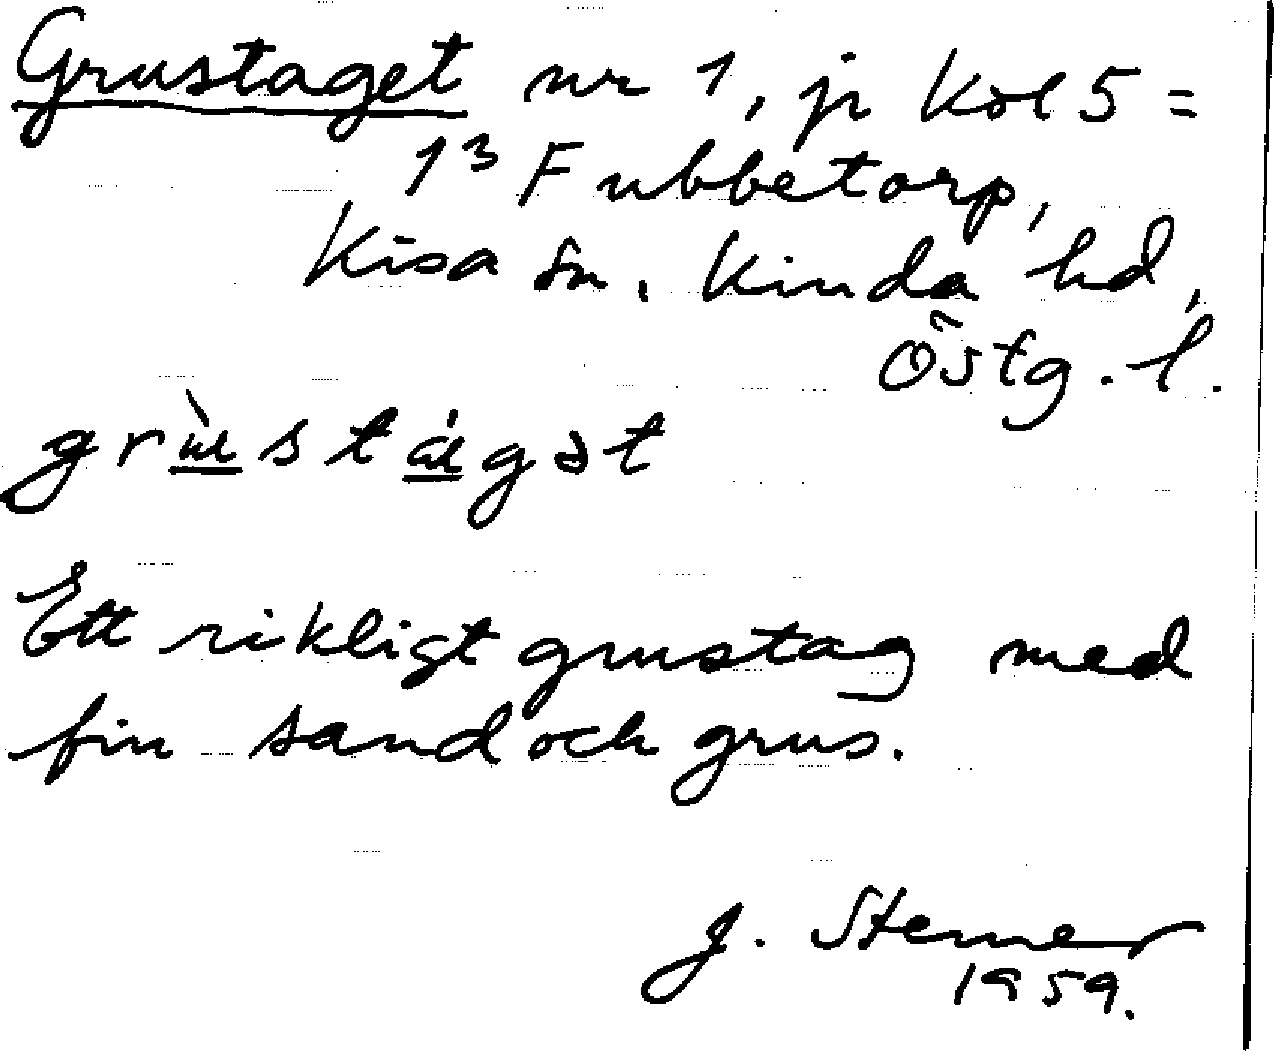 Grustaget nr 1, ji Kol 5 =
1³ Fubbetorp,
Kisa sn, Kinda hd,
Östg. l.
grùstágət
Ett rikligt grustag med
fin sand och grus.
J. Sterner
1959.